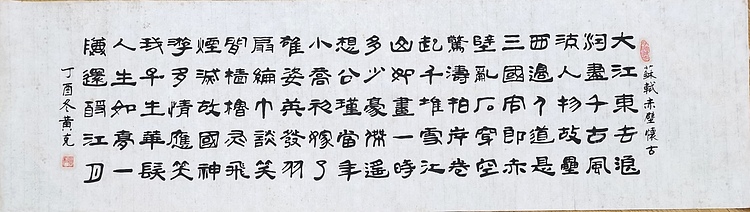 蘇軾赤壁懷古
大江東去浪
淘盡千古風
流人物故壘
西邊人道是
三國周郎赤
壁亂石穿空
驚濤拍岸卷
起千堆雪江
山如畫一時
多少豪傑遙
想公瑾當年
小喬初嫁了
雄姿英發羽
扇綸巾談笑
間檣櫓灰飛
煙滅故國神
游多情應笑
我早生華髮
人生如夢一
還酹江月
丁酉冬黃克